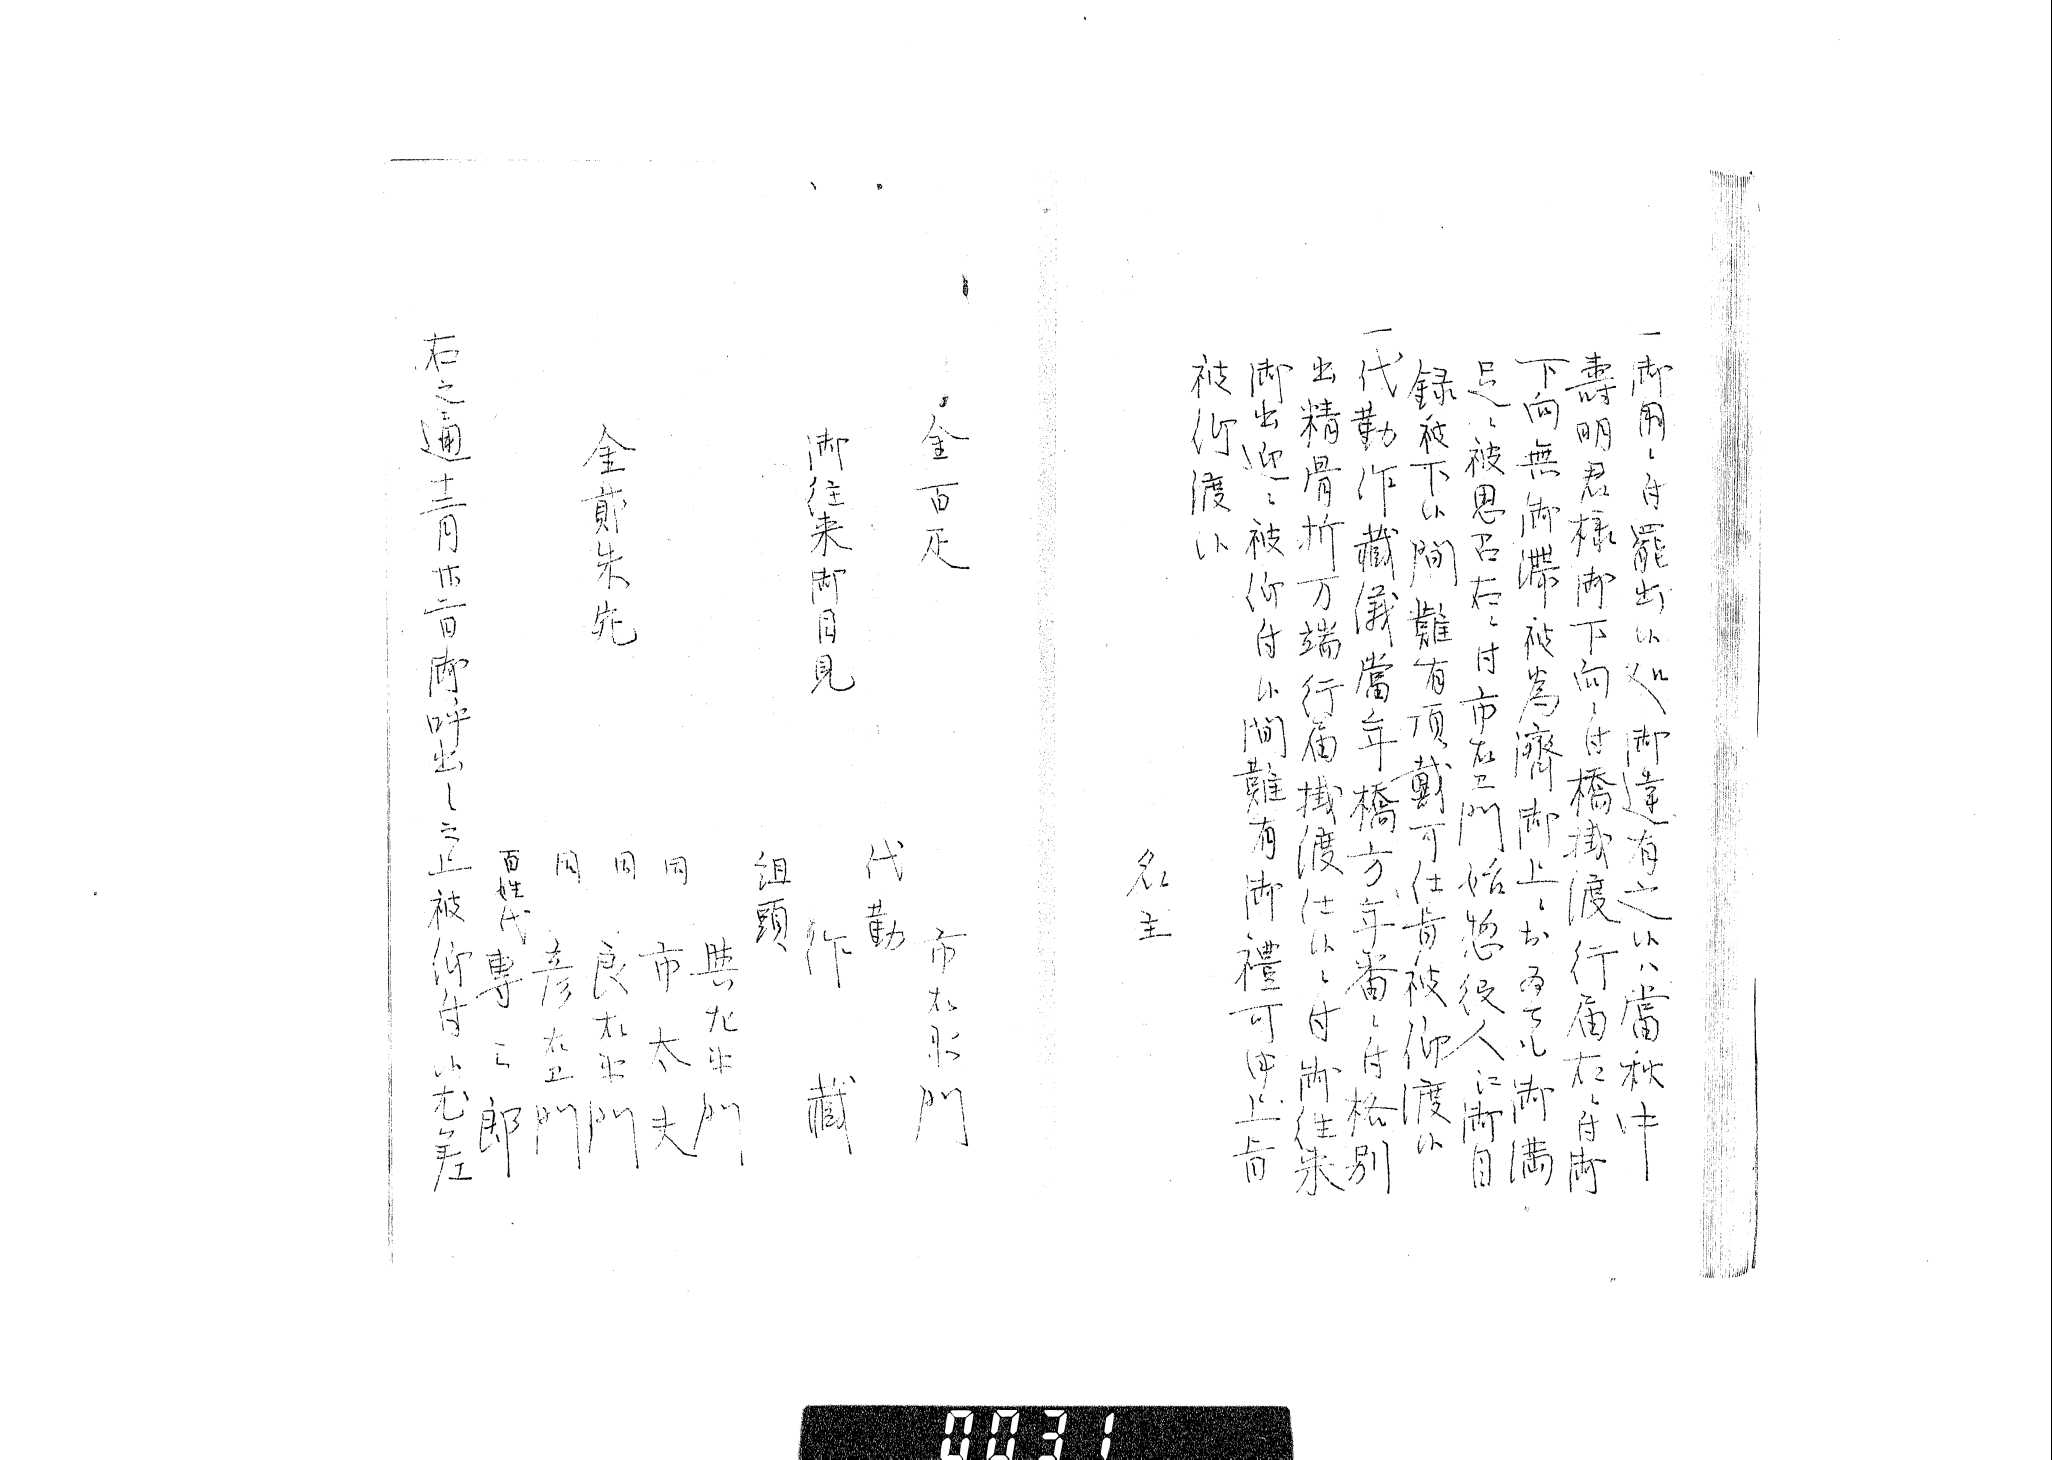 一御用ニ付罷出候処御達有之候ハ當秋中
壽明君様御下向ニ付橋掛渡行届右ニ付御
下向無御滞被為濟御上ニおゐても御満
足ニ被思召右ニ付市右衛門始惣役人江御目
録被下候間難有頂戴可仕旨被仰渡候
一代勤作藏儀當年橋方年番ニ付格別
出精骨折万端行届掛渡仕候ニ付御往来
御出迎ニ被仰付候間難有御禮可申上旨
被仰渡候
名主
金百疋
市右衛門
代勤
御往来御目見
作藏
組頭
與九衛門
同 市太夫
金貳朱宛
同 良右衛門
同 彦右衛門
百姓代 專三郎
右之通十二月廿二日御呼出し之上被仰付候尤差
0031